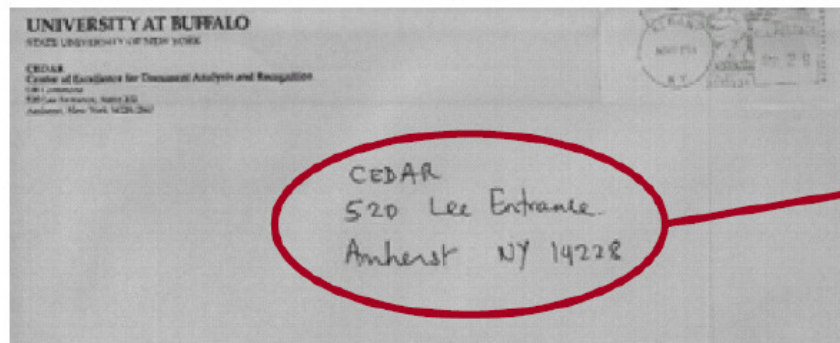 UNIVERSITY AT BUFFALO
STATE UNIVERSITY OF NEW YORK
CEDAR
Center of Excellence for Document Analysis and Recognition
520 Lee Entrance, Suite 202
Amherst, New York 14228-2567
CEDAR
520 Lee Entrance.
Amherst NY 14228